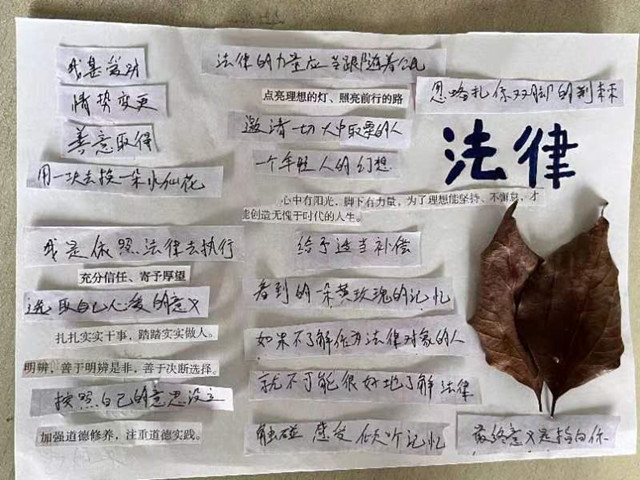 我是爱对
情势变更
善意取得
用一块去换一朵水仙花
我是依照法律去执行
充分信任、寄予厚望
选取自己心爱的意义
扎扎实实干事，踏踏实实做人。
明辨，善于明辨是非，善于决断选择。
按照自己的意思设立
加强道德修养，注重道德实践。
法律的力量应当跟随着公民
点亮理想的灯、照亮前行的路
邀请一切大中取票的人
一个年轻人的幻想
心中有阳光，脚下有力量，为了理想能坚持、不懈怠，才
能创造无愧于时代的人生。
给予适当补偿
看到的一朵黄玫瑰的记忆
如果不了解作为法律对象的人
就不可能很好地了解法律
触碰 感受 倾听记忆
忽略扎你双脚的荆棘
法律
最终意义是指向你